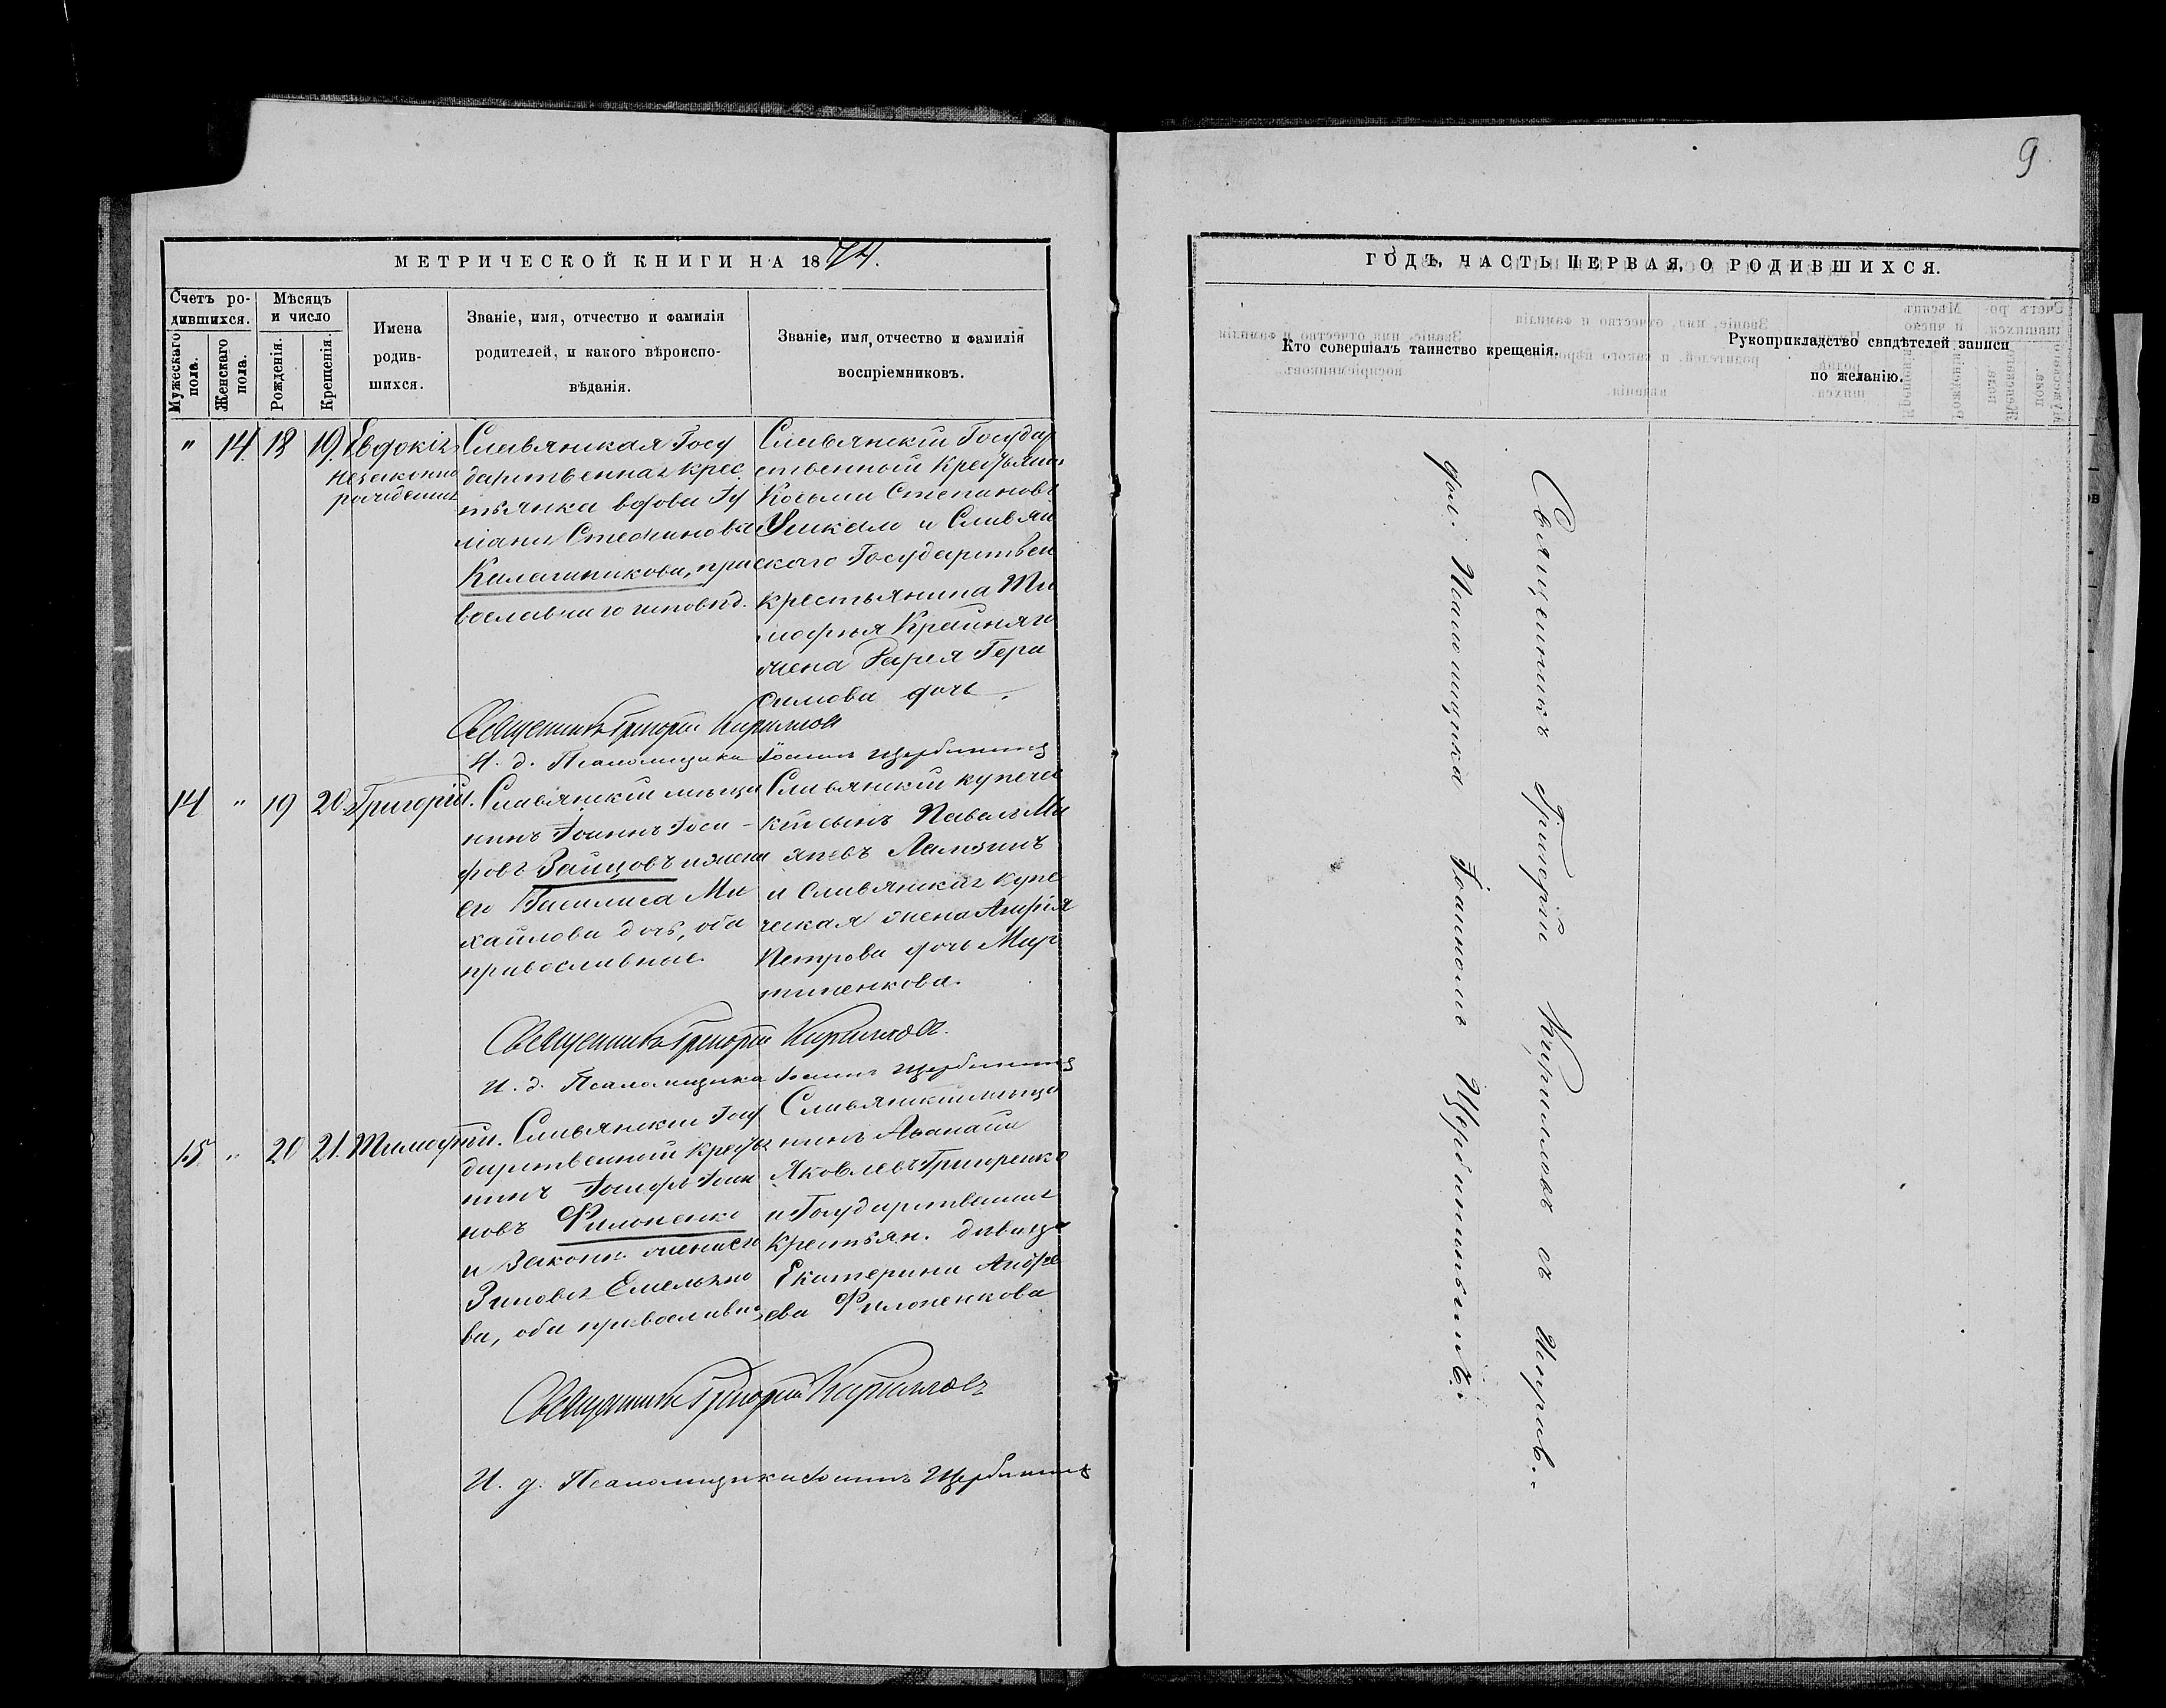 9
МЕТРИЧЕСКОЙ КНИГИ НА 1874.
Счетъ ро-
дившихся.
Мужескаго
пола.
Женскаго
пола.
Мѣсяцъ
и число
Рожденія.
Крещенія.
Имена
родив-
шихся.
Званіе, имя, отчество и фамилія
родителей, и какого вѣроиспо-
вѣданія.
Званіе, имя, отчество и фамилія
воспріемниковъ.
" 14. 18 19. Евдокія
незаконно
рожденная
Славянская Госу
дарственная крес
тьянка вдова Іу
ліанія Степанова
Калашникова, пра
вославнаго исповѣд.
Славянскій Государ
ственный Крестьянинъ
Косьма Степановъ
и Славян
скаго Государствен
крестьянина Ти
мофея Крайняго
жена Дарья Гера
симова дочь.
Священникъ Григорій Кирилловъ
И. д. Псаломщика Іоаннъ Щербининъ
14 " 19 20. Григорій.
Славянскій мѣща
нинъ Іоаннъ Іоси-
фовъ Зайцовъ и жена
его Василиса Ми
хайлова дочь, оба
православные.
Славянскій купечес
кій сынъ Павелъ Ми
няевъ Лямзинъ
и Славянская купе
ческая жена
Петрова дочь Мар
тыненкова.
Священникъ Григорій Кирилловъ.
И. д. Псаломщика Іоаннъ Щербининъ
15. " 20 21. Тимофей.
Славянскій Госу
дарственный Крестья
нинъ Іосифъ Іоан
новъ Филоненко
и законн. жена его
Зиновія Емельяно
ва, оба православные
Славянскій мѣща
нинъ Аѳанасій
Яковлевъ Григоренко
и Государственная
Крестьян. дѣвица
Екатерина Андре
ева Филоненкова
Священникъ Григорій Кирилловъ
И. д. Псаломщика Іоаннъ Щербининъ
ГОДЪ, ЧАСТЬ ПЕРВАЯ, О РОДИВШИХСЯ.
Кто совершалъ таинство крещенія.
Рукоприкладство свидѣтелей записи
по желанію.
Священникъ Григорій Кирилловъ съ Исправ.
дол. Псаломщика Іоанномъ Щербининымъ.